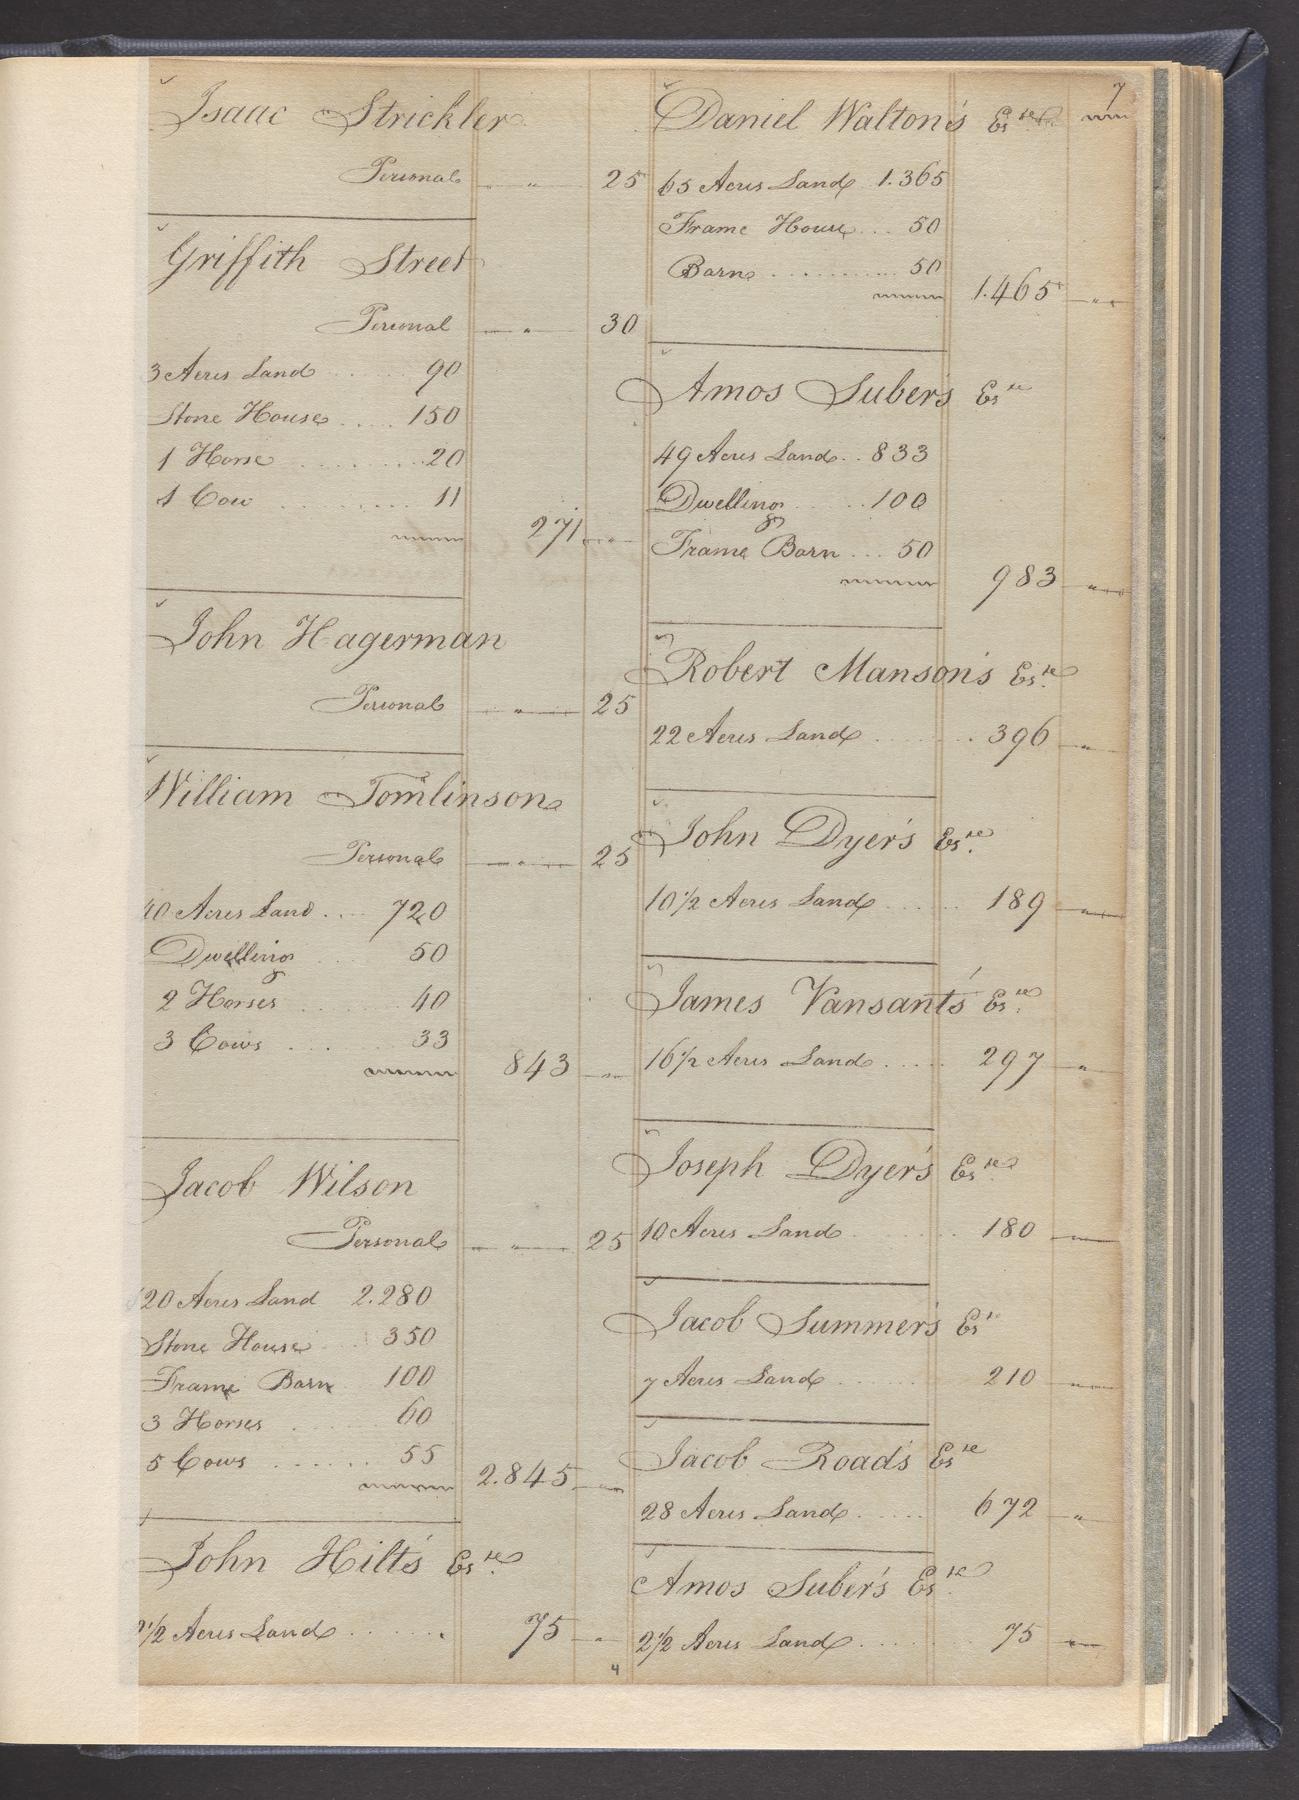 Isaac Strickler
Personal " 25
Griffith Street
Personal " 30
3 Acres Land 90
Stone House 150
1 Horse 20
1 Cow 11
271
John Hagerman
Personal " 25
William Tomlinson
Personal " 25
40 Acres Land 720
Dwelling 50
2 Horses 40
3 Cows 33
843
Jacob Wilson
Personal " 25
120 Acres Land 2.280
Stone House 350
Frame Barn 100
3 Horses 60
5 Cows 55
2.845
John Hilt's Es.te
2½ Acres Land 75
4
7
Daniel Walton's Es.te
65 Acres Land 1.365
Frame House 50
Barn 50
1.465
Amos Suber's Es.te
49 Acres Land 833
Dwelling 100
Frame Barn 50
983
Robert Manson's Es.te
22 Acres Land 396
John Dyer's Es.te
10½ Acres Land 189
James Vansant's Es.te
16½ Acres Land 297
Joseph Dyer's Es.te
10 Acres Land 180
Jacob Summer's Es.te
7 Acres Land 210
Jacob Road's Es.te
28 Acres Land 672
Amos Suber's Es.te
2½ Acres Land 75